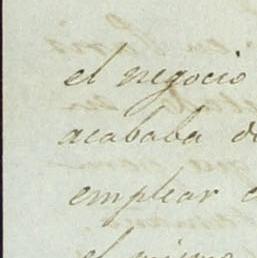 el negocio
acababa d
emplear
el mismo